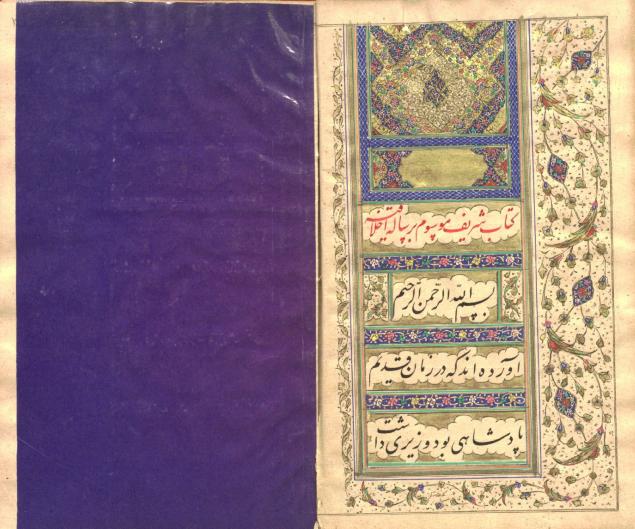 کتاب شریف موسوم برساله اخلاقیه
بسم الله الرحمن الرحیم
آورده اند که در زمان قدیم
پادشاهی بود وزیری داشت